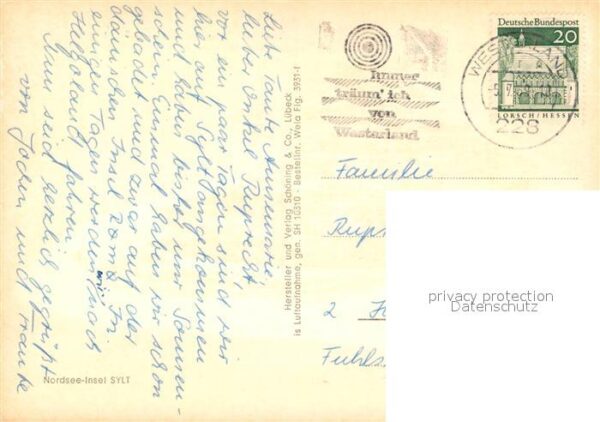 Liebe Tante Annemarie,
lieber Onkel Ruprecht,
vor ein paar Tagen sind wir
hier auf Sylt angekommen
und haben bisher nur Sonnen-
schein. Einmal haben wir schon
gebadet und zwar auf der
dänischen Insel Römö. In
einigen Tagen werden wir nach
Helgoland fahren.
Nun seid herzlich gegrüßt
von Jochen und Frauke
Nordsee-Insel SYLT
Hersteller und Verlag Schöning & Co., Lübeck
is Luftaufnahme, gen. SH 10310 - Bestellnr. Wela Flg. 3931-1
Immer
träum' ich
von
Westerland
WESTERLAND
228
Deutsche Bundespost
20
LORSCH / HESSEN
Familie
Rupr
2
Fuhls
privacy protection
Datenschutz